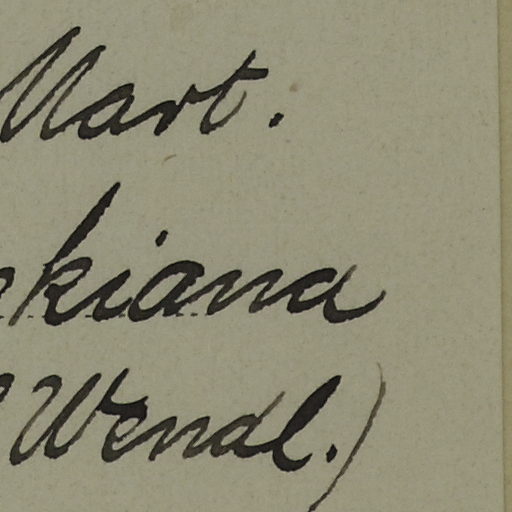 Mart.
kiana
Wendl.)